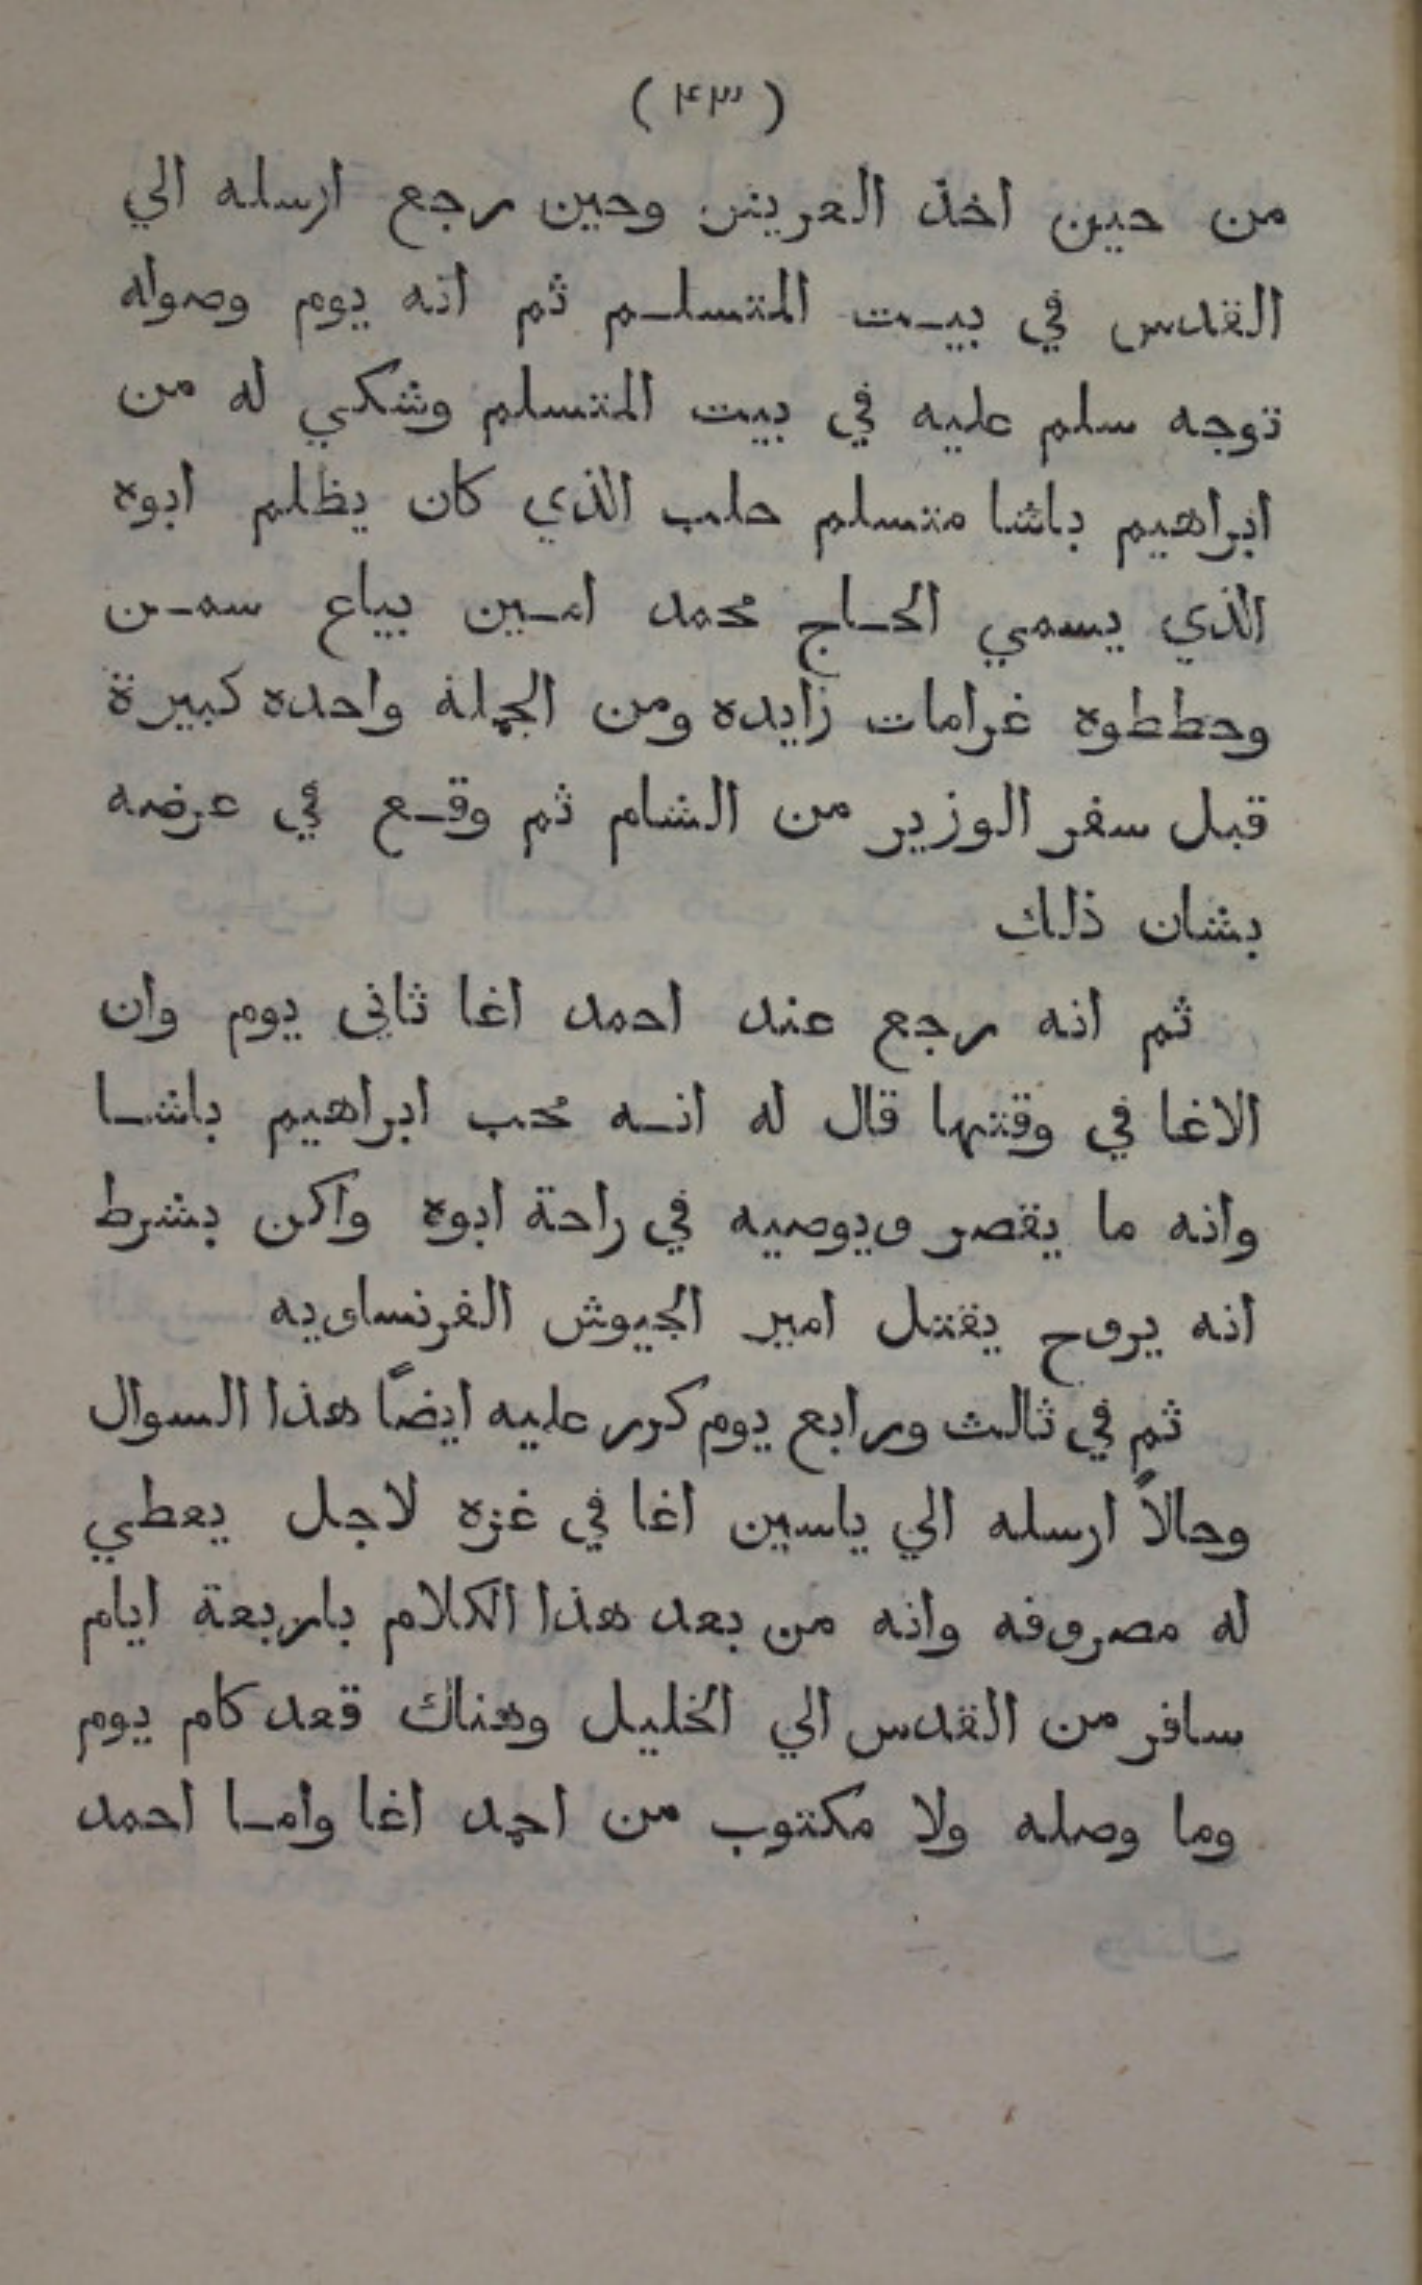 (٤٣)
من حين اخذ العريش وحين رجع ارسله الي
القدس في بيت المتسلم ثم انه يوم وصوله
توجه سلم عليه في بيت المتسلم وشكي له من
ابراهيم باشا متسلم حلب الذي كان يظلم ابوه
الذي يسمي الحاج محمد امين بياع سمن
وحططوه غرامات زايده ومن الجملة واحده كبيرة
قبل سفر الوزير من الشام ثم وقع في عرضه
بشان ذلك
ثم انه رجع عند احمد اغا ثاني يوم وان
الاغا في وقتها قال له انه محب ابراهيم باشا
وانه ما يقصر ويوصيه في راحة ابوه ولكن بشرط
انه يروح يقتل امير الجيوش الفرنساويه
ثم في ثالث ورابع يوم كرر عليه ايضًا هذا السوال
وحالاً ارسله الي ياسين اغا في غزه لاجل يعطي
له مصروفه وانه من بعد هذا الكلام باربعة ايام
سافر من القدس الي الخليل وهناك قعد كام يوم
وما وصله ولا مكتوب من احمد اغا واما احمد